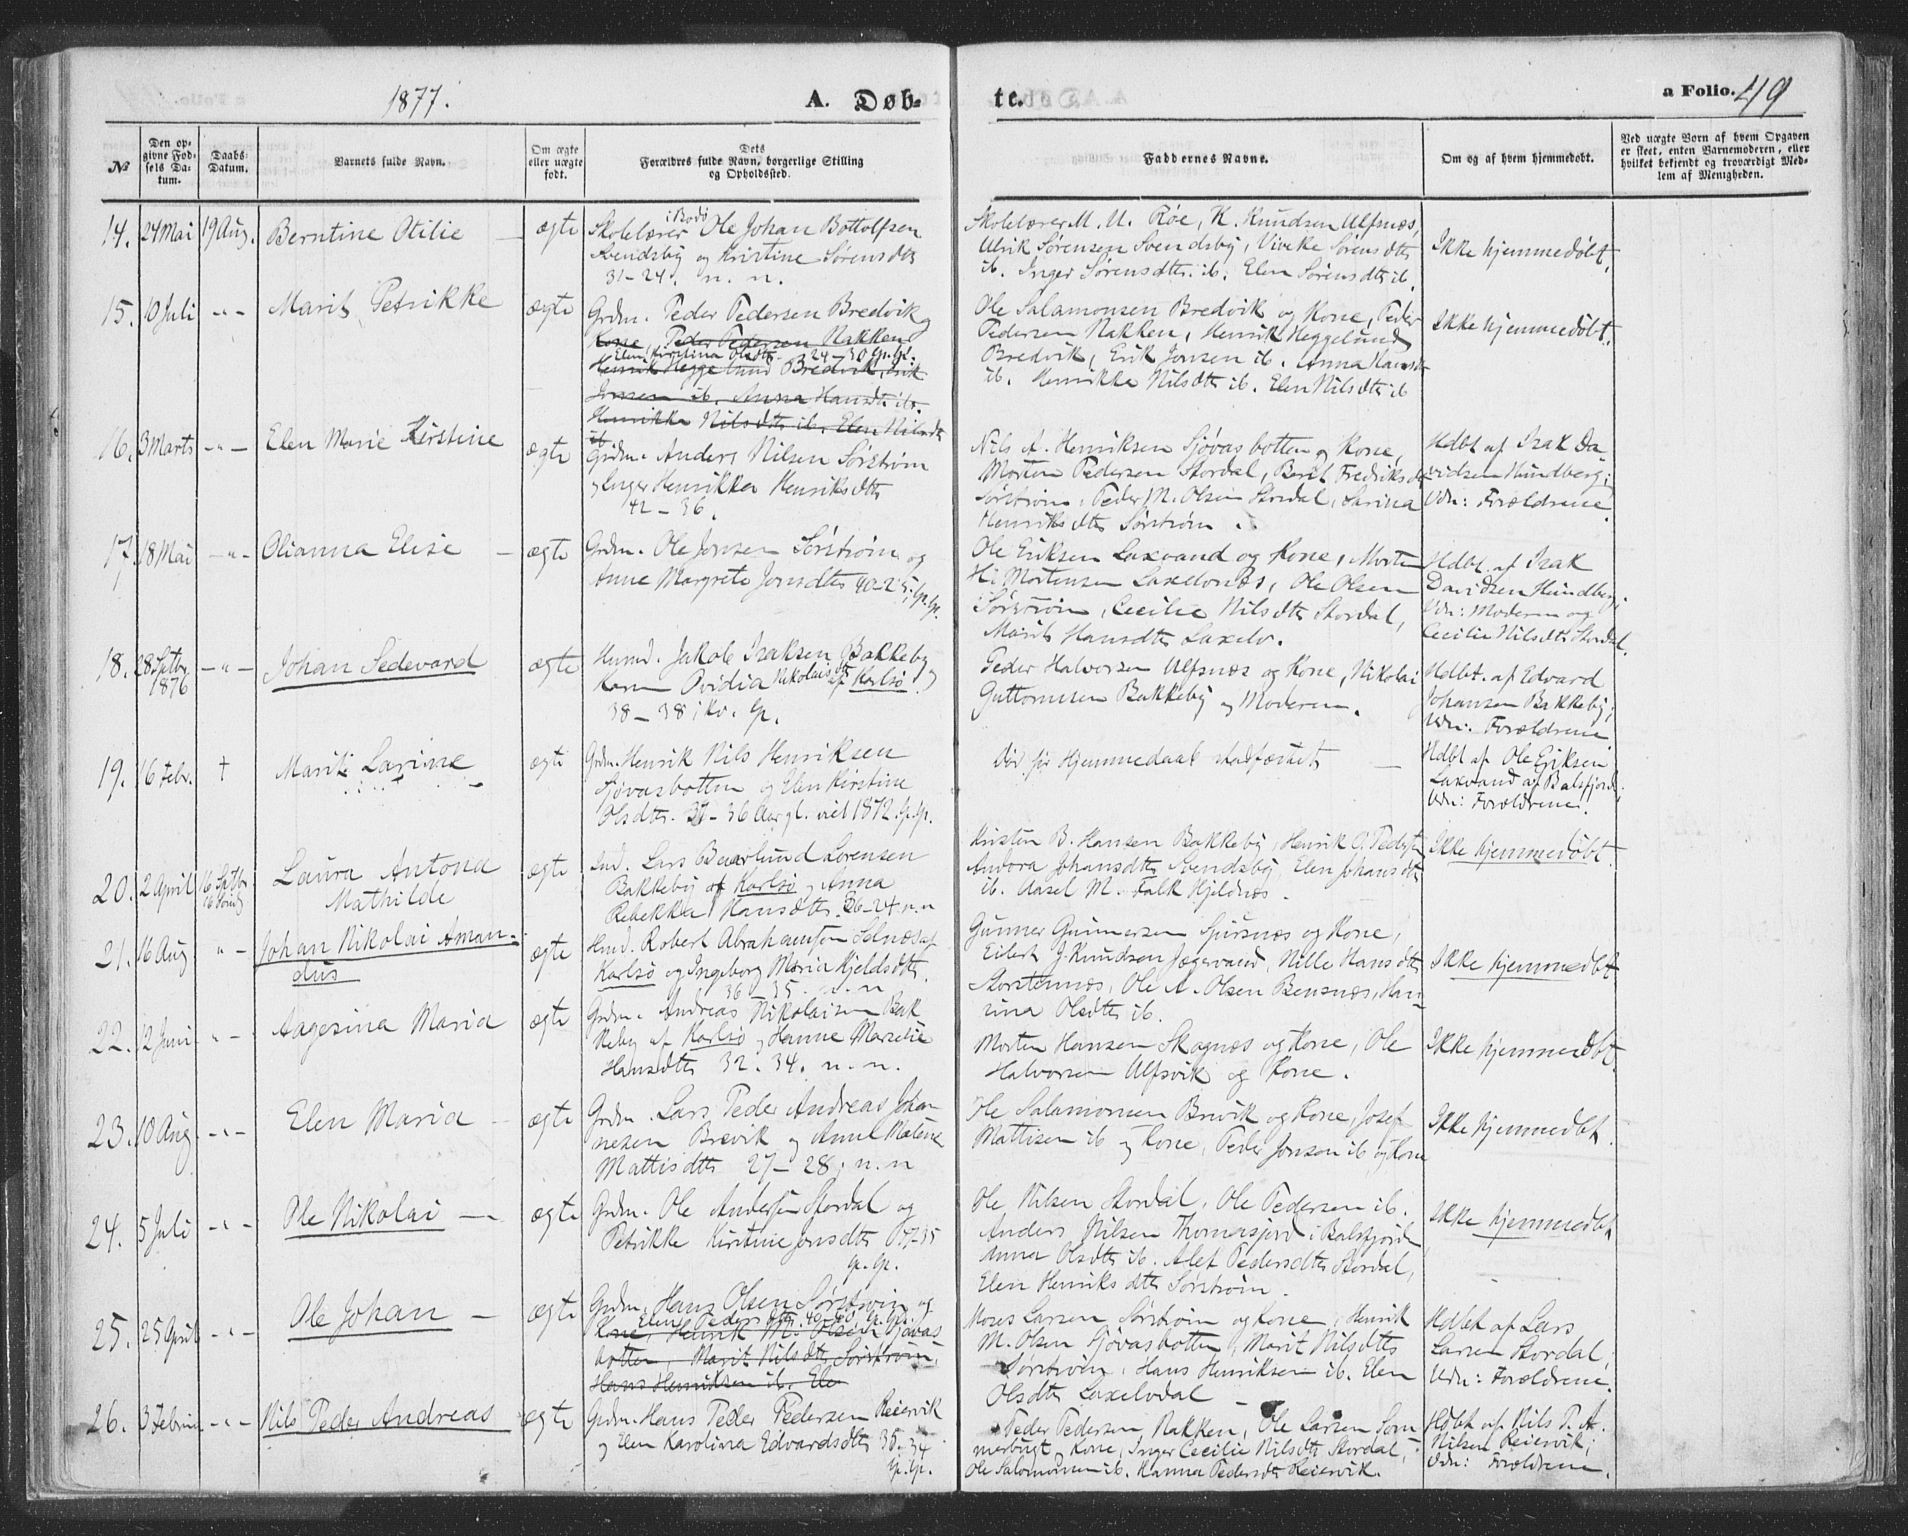 1877.
A. Døb-
te.
a Folio. 49
№
Den op-
givne Fød-
sels Da-
tum.
Daabs-
Datum.
Barnets fulde Navn.
Om ægte
eller uægte
født.
Dets
Forældres fulde Navn, borgerlige Stilling
og Opholdssted.
Faddernes Navne.
Om og af hvem hjemmedøbt.
Ved uægte Børn af hvem Opgaven
er skeet, enten Barnemoderen, eller
hvilket bekjendt og troværdigt Med-
lem af Menigheden.
14. 24 Mai 19 Aug. Berntine Otilie — ægte
i Bodø
Skolelærer Ole Johan Bottolfsen
Svendsby og Kristine Sørensdtr
31-24. n. n.
Skolelærer M. U. Røe, K. Knudsen Ulfsnæs,
Ulrik Sørensen Svendsby, Viveke Sørensdtr
ib. Inger Sørensdtr ib. Elen Sørensdtr ib.
Ikke hjemmedøbt.
15. 10 Juli -"- Marit Petrikke ægte
Grdm. Peder Pedersen Bredvik og
Kone, Peder Pedersen Nakken
Elen Kirstina Olsdtr. 24-30 Gp. Gp.
Henrik Heggelund Bredvik, Erik
Jonsen ib. Anna Hansdtr ib.
Henrikke Nilsdtr ib. Elen Nilsdtr
ib
Ole Salamonsen Bredvik og Kone, Peder
Pedersen Nakken, Henrik Heggelund
Bredvik, Erik Jonsen ib. Anna Hansdtr
ib. Henrikke Nilsdtr ib. Elen Nilsdtr ib
Ikke hjemmedøbt.
16. 3 Marts -"- Elen Marie Kirstine ægte
Grdm. Anders Nilsen Sørstrøm
og Inger Henrikka Henriksdtr
42-36.
Nils A. Henriksen Sjøvasbotten og Kone,
Morten Pedersen Stordal, Berit Fredriksdtr
Sørstrøm, Peder M. Olsen Stordal, Sarina
Henriksdtr Sørstrøm
Hdbt af Isak Da-
vidsen Hundberg;
Vdn: Forældrene.
17. 18 Mai -"- Olianna Elise — ægte
Grdm. Ole Jonsen Sørstrøm og
Anne Margrete Jonsdtr 40-25; Gp. Gp.
Ole Eriksen Laxvand og Kone, Morten
Hi Mortensen Laxelvnæs, Ole Olsen
Sørstrøm, Cecilie Nilsdtr Stordal,
Marit Hansdtr Laxelv.
Hdbt af Isak
Davidsen Hundberg;
Vdn: Moderen og
Cecilie Nilsdtr Stordal.
18. 28 Septbr -"- Johan Sedevard ægte
1876
Husmd. Jakob Isaksen Bakkeby og
Karen Ovidia Nikolaisdtr af Karlsø
38-38; Kv. Gp.
Peder Halvorsen Ulfsnæs og Kone, Nikolai
Guttormsen Bakkeby og Moderen.
Hdbt. af Edvard
Johansen Bakkeby;
Vdn: Forældrene
19. 16 Febr. † Marit Larine ægte
Grdm. Henrik Nils Henriksen
Sjøvasbotten og Elen Kirstine
Olsdtr. 31-36 Aar gl. viet 1872. Gp. Gp.
Død før Hjemmedaab stadfæstet —
Hdbt af Ole Eriksen
Laxvand af Balsfjord;
Vdn: Forældrene.
20. 2 April 16 Septbr Laura Antona ægte
Mathilde
Ind. Lars Baarlund Lorensen
Bakkeby af Karlsø og Anna
Rebekka Hansdtr. 26-24 n. n
Kristen B. Hansen Bakkeby, Henrik O. Peders
Andora Johansdtr Svendsby, Elen Johansdtr
ib. Aasel M. Falk Kjeldnæs.
Ikke hjemmedøbt.
21. 16 Aug "- Johan Nikolai Aman-
dus ægte
Husmd. Robert Abrahamsen Selnæs af
Karlsø og Ingeborg Maria Kjeldsdtr.
36-35. n. n
Gunner Gunnersen Spirsnæs og Kone,
Eilert J. Knudsen Jægervand, Nille Hansdtr
Storstennæs, Ole A. Olsen Bensnæs, Han-
sina Olsdtr ib.
Ikke hjemmedbt
22. 12 Juni "- Aagesina Maria ægte
Grdm. Andreas Nikolaisen Bak-
keby af Karlsø og Hanne Marselie
Hansdtr 32. 34. n. n.
Morten Hansen Skognæs og Kone, Ole
Halvorsen Ulfsvik og Kone.
Ikke hjemmedbt.
23. 10 Aug. -"- Elen Maria — ægte
Grdm. Lars Peder Andreas Johan-
nesen Brevik og Anne Malene
Mattisdtr 27-28; n. n
Ole Salamonsen Brevik og Kone, Josef
Mattisen ib og Kone, Peder Jonsen ib og Kone
Ikke hjemmedbt.
24. 5 Juli -"- Ole Nikolai — ægte
Grdm. Ole Andersen Stordal og
Petrikke Kirstine Jensdtr 37-35
Gp. Gp.
Ole Nilsen Stordal, Ole Pedersen ib.
Anders Nilsen Thomasjord i Balsfjord
Anna Olsdtr ib. Alet Pedersdtr Stordal,
Elen Henriksdtr Sørstrøm.
Ikke hjemmedbt
25. 25 April -"- Ole Johan — ægte
Grdm. Hans Olsen Sørstrøm og
Elen Pedersdtr. 40-40. Gp. Gp.
Kone, Henrik M. Olsen Sjøvas-
botten, Marit Nilsdtr Sørstrøm,
Hans Henriksen ib. Elen
Moses Larsen Sørstrøm og Kone, Henrik
M. Olsen Sjøvasbotten, Marit Nilsdtr
Sørstrøm, Hans Henriksen ib. Elen
Olsdtr Laxelvdal —
Hdbt af Lars
Larsen Stordal;
Vdn: Forældrene.
26. 3 Februar -"- Nils Peder Andreas ægte
Grdm. Hans Peder Pedersen Reiervik
og Elen Karolina Edvardsdtr 35-34
Gp. Gp.
Peder Pedersen Nakken, Ole Larsen Som-
merbugt og Kone, Inger Cecilie Nilsdtr Stordal,
Ole Salomonsen ib. Hanna Pedersdtr Reiervik.
Hdbt af Nils P. A.
Nilsen Reiervik;
Vdn: Forældrene.